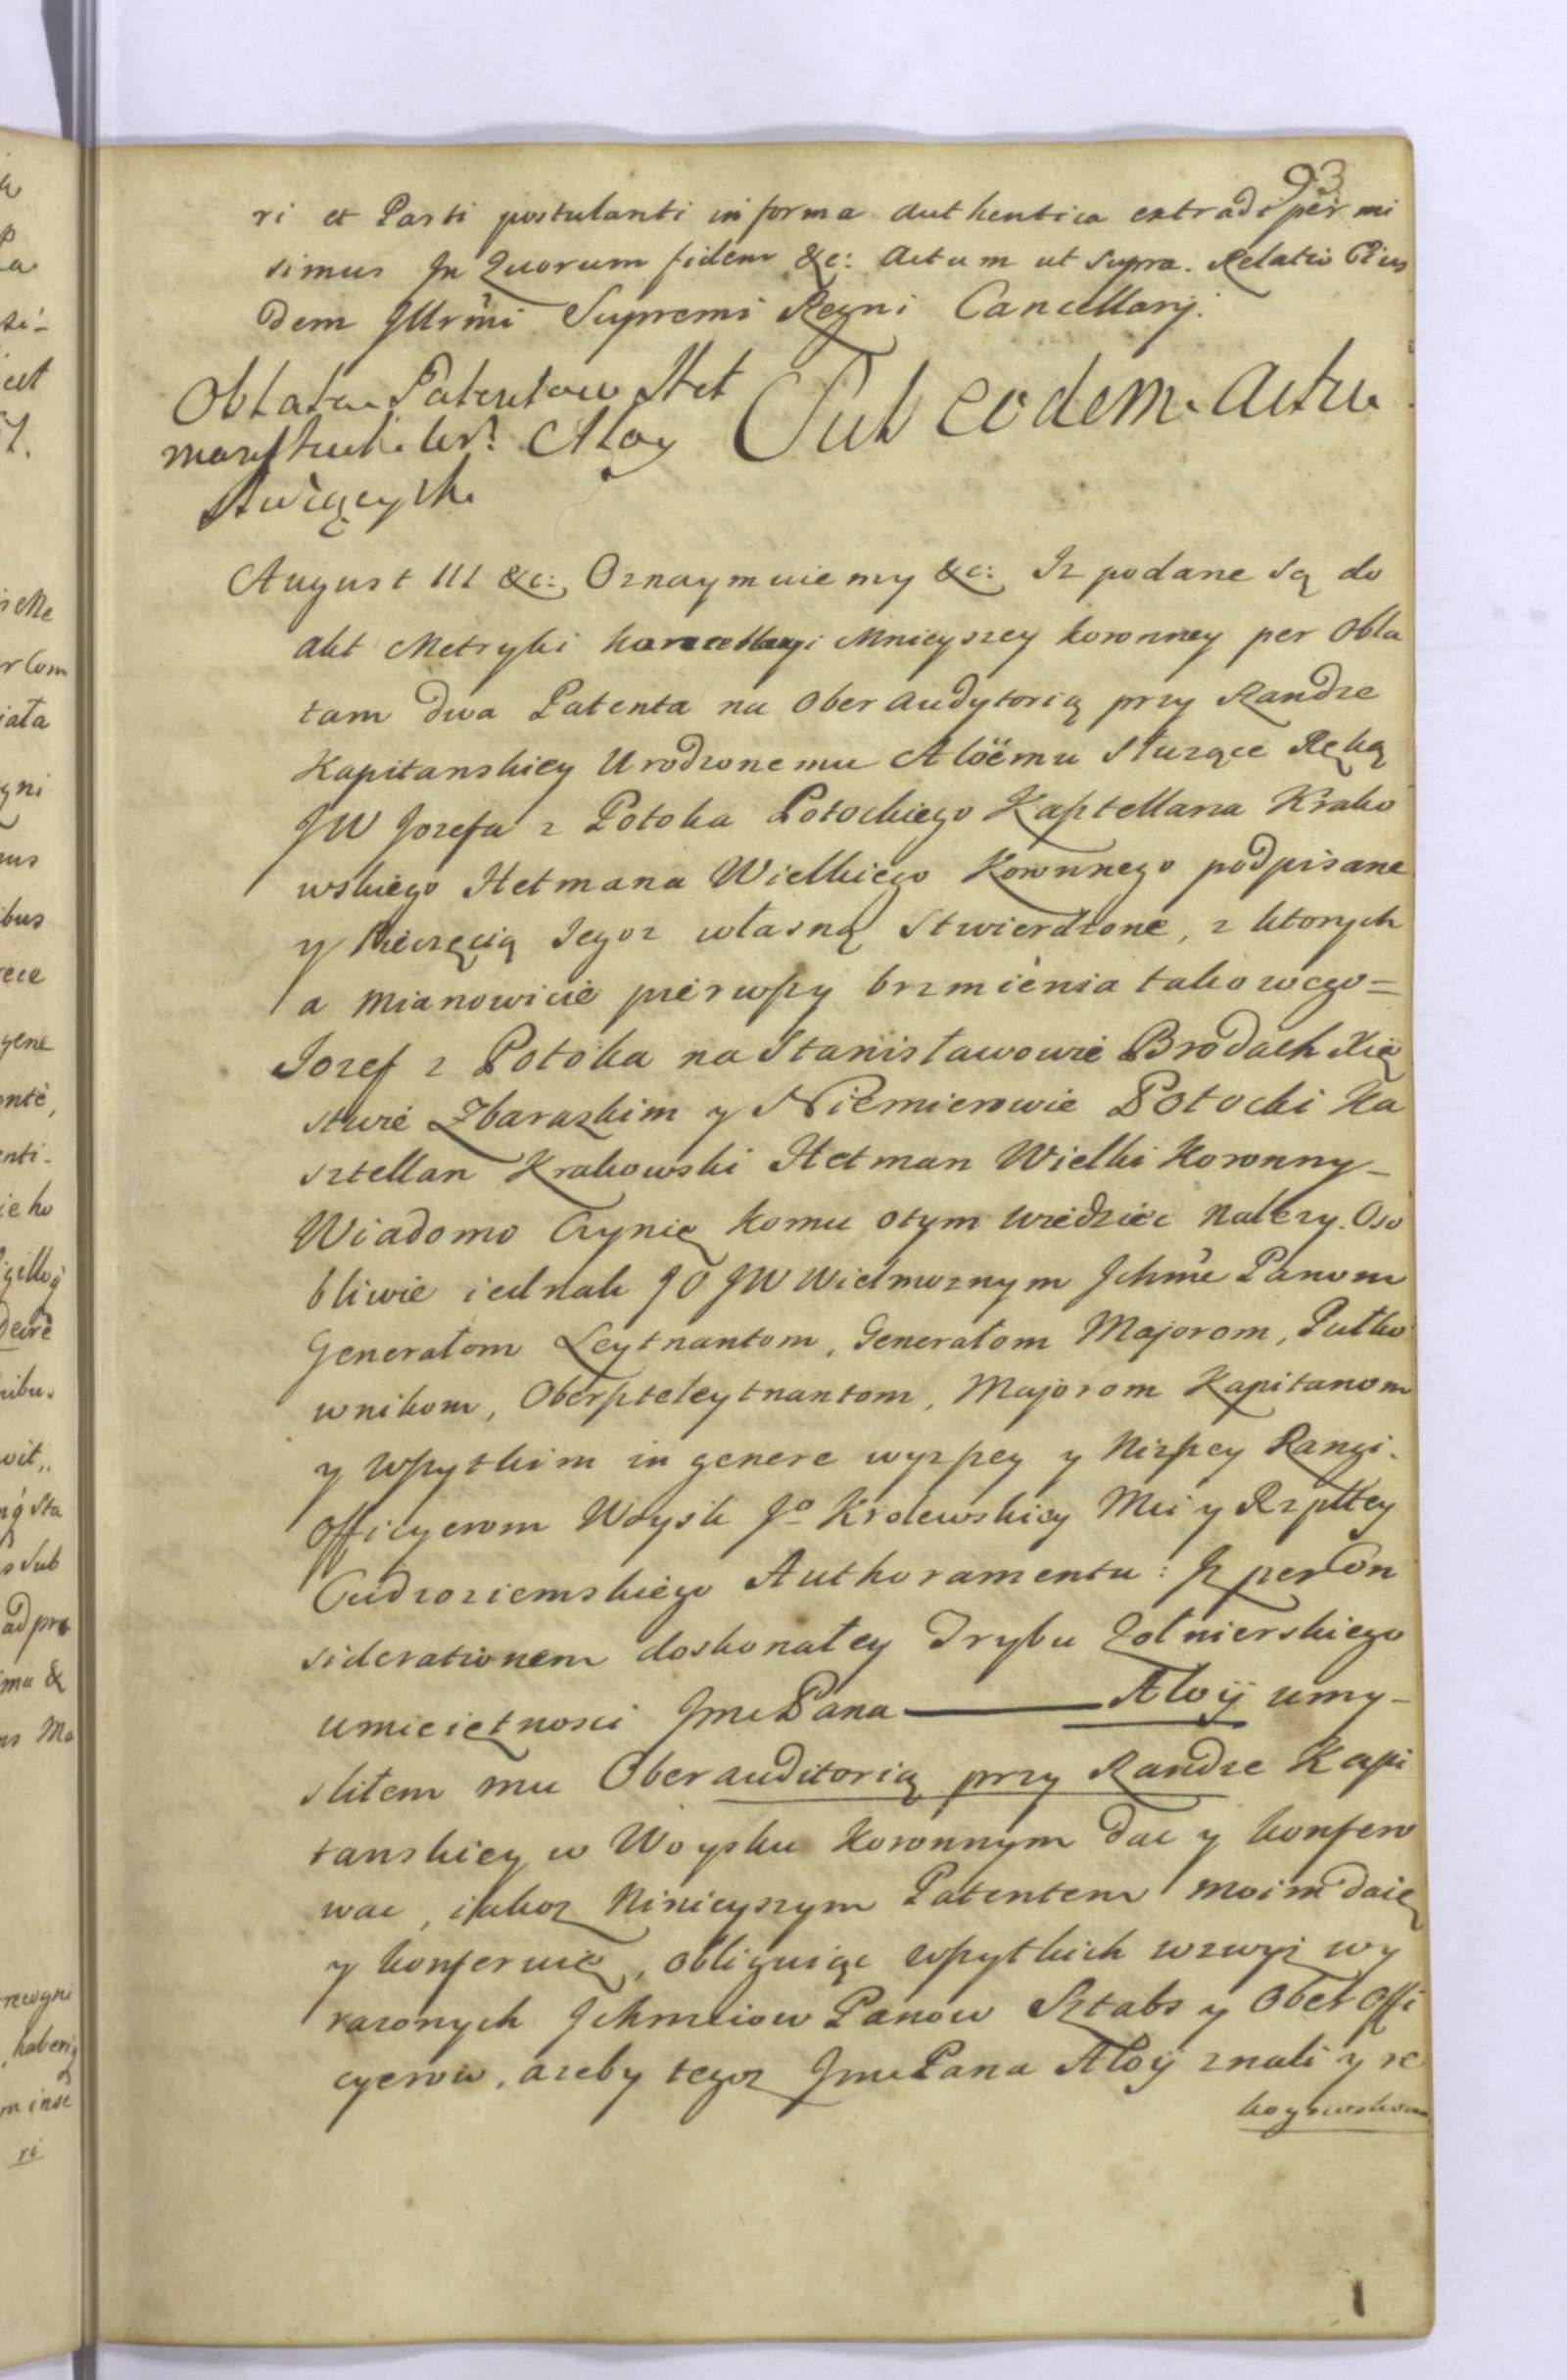 93
ri et Parti postulanti in forma authentica extradi permi
simus In Quorum fidem &c: Actum ut Supra. Relatio Eius
dem Jllrmi Supremi Regni Cancellarij.
Oblata Patentow Het
manskich Ur: Aloy
Służących
Sub eodem Actu
August III &c: Oznaymuiemy &c: Iz podane są do
akt Metryki kancellaryi Mnieyszey koronney per Obla
tam dwa Patenta na Ober Audytorią przy Randze
Kapitanskiey Urodzonemu Aloëmu Służące Ręką
JW Jozefa z Potoka Potockiego Kasztellana Krako
wskiego Hetmana Wielkiego Koronnego podpisane
y Pieczęcią Jegoz własną Stwierdzone, z ktorych
a mianowicie pierwszy brzmienia takowego=
Jozef z Potoka na Stanisławowie Brodach Xię
stwie Zbarazkim y Niemierowie Potocki Ka
sztellan Krakowski Hetman Wielki Koronny-
Wiadomo Czynię komu otym wiedziec Nalezy. Oso
bliwie iednak JO JW Wielmoznym Jchmc Panom
Generałom Leytnantom, Generałom Majorom, Pułko
wnikom, Oberszteleytnantom, Majorom Kapitanom
y Wszytkim in genere wyzszey y Nizszey Rangi.
Officyerom Woysk Jo Krolewskiey Mci y Rzpltey
Cudzoziemskiego Authoramentu: Iz per Con
siderationem doskonałey Trybu Zołnierskiego
umieiętnosci Jmc Pana ——— Aloij umy-
sliłem mu Oberauditorią przy Randze Kapi
tanskiey w Woysku Koronnym dac y konfero
wac, iakoz Ninieyszym Patentem moim daię
y konferuię, obliguiąc wszytkich wzwyz wy
razonych Jchmciow Panow Sztabs y Ober Offi
cyerow, azeby tegoz Jmc Pana Aloij znali y re